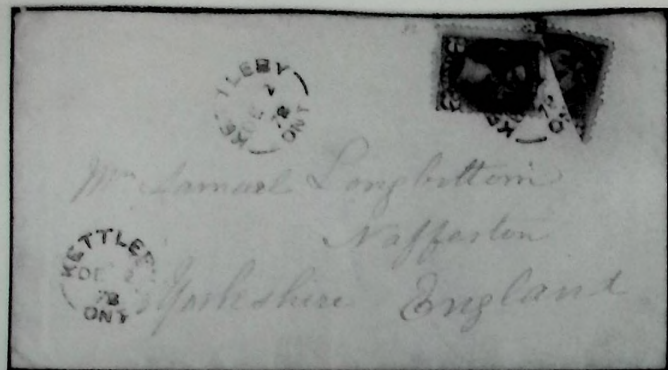 KETTLEBY
DE 2
78
ONT
Mr Samuel Longbottom
Nafferton
Yorkshire England
KETTLEBY
DE 2
78
ONT